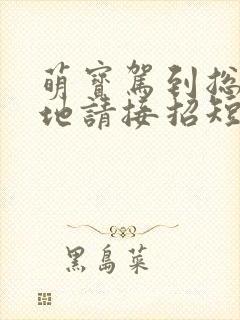 萌寶駕到總
地請接招短
黑島菜